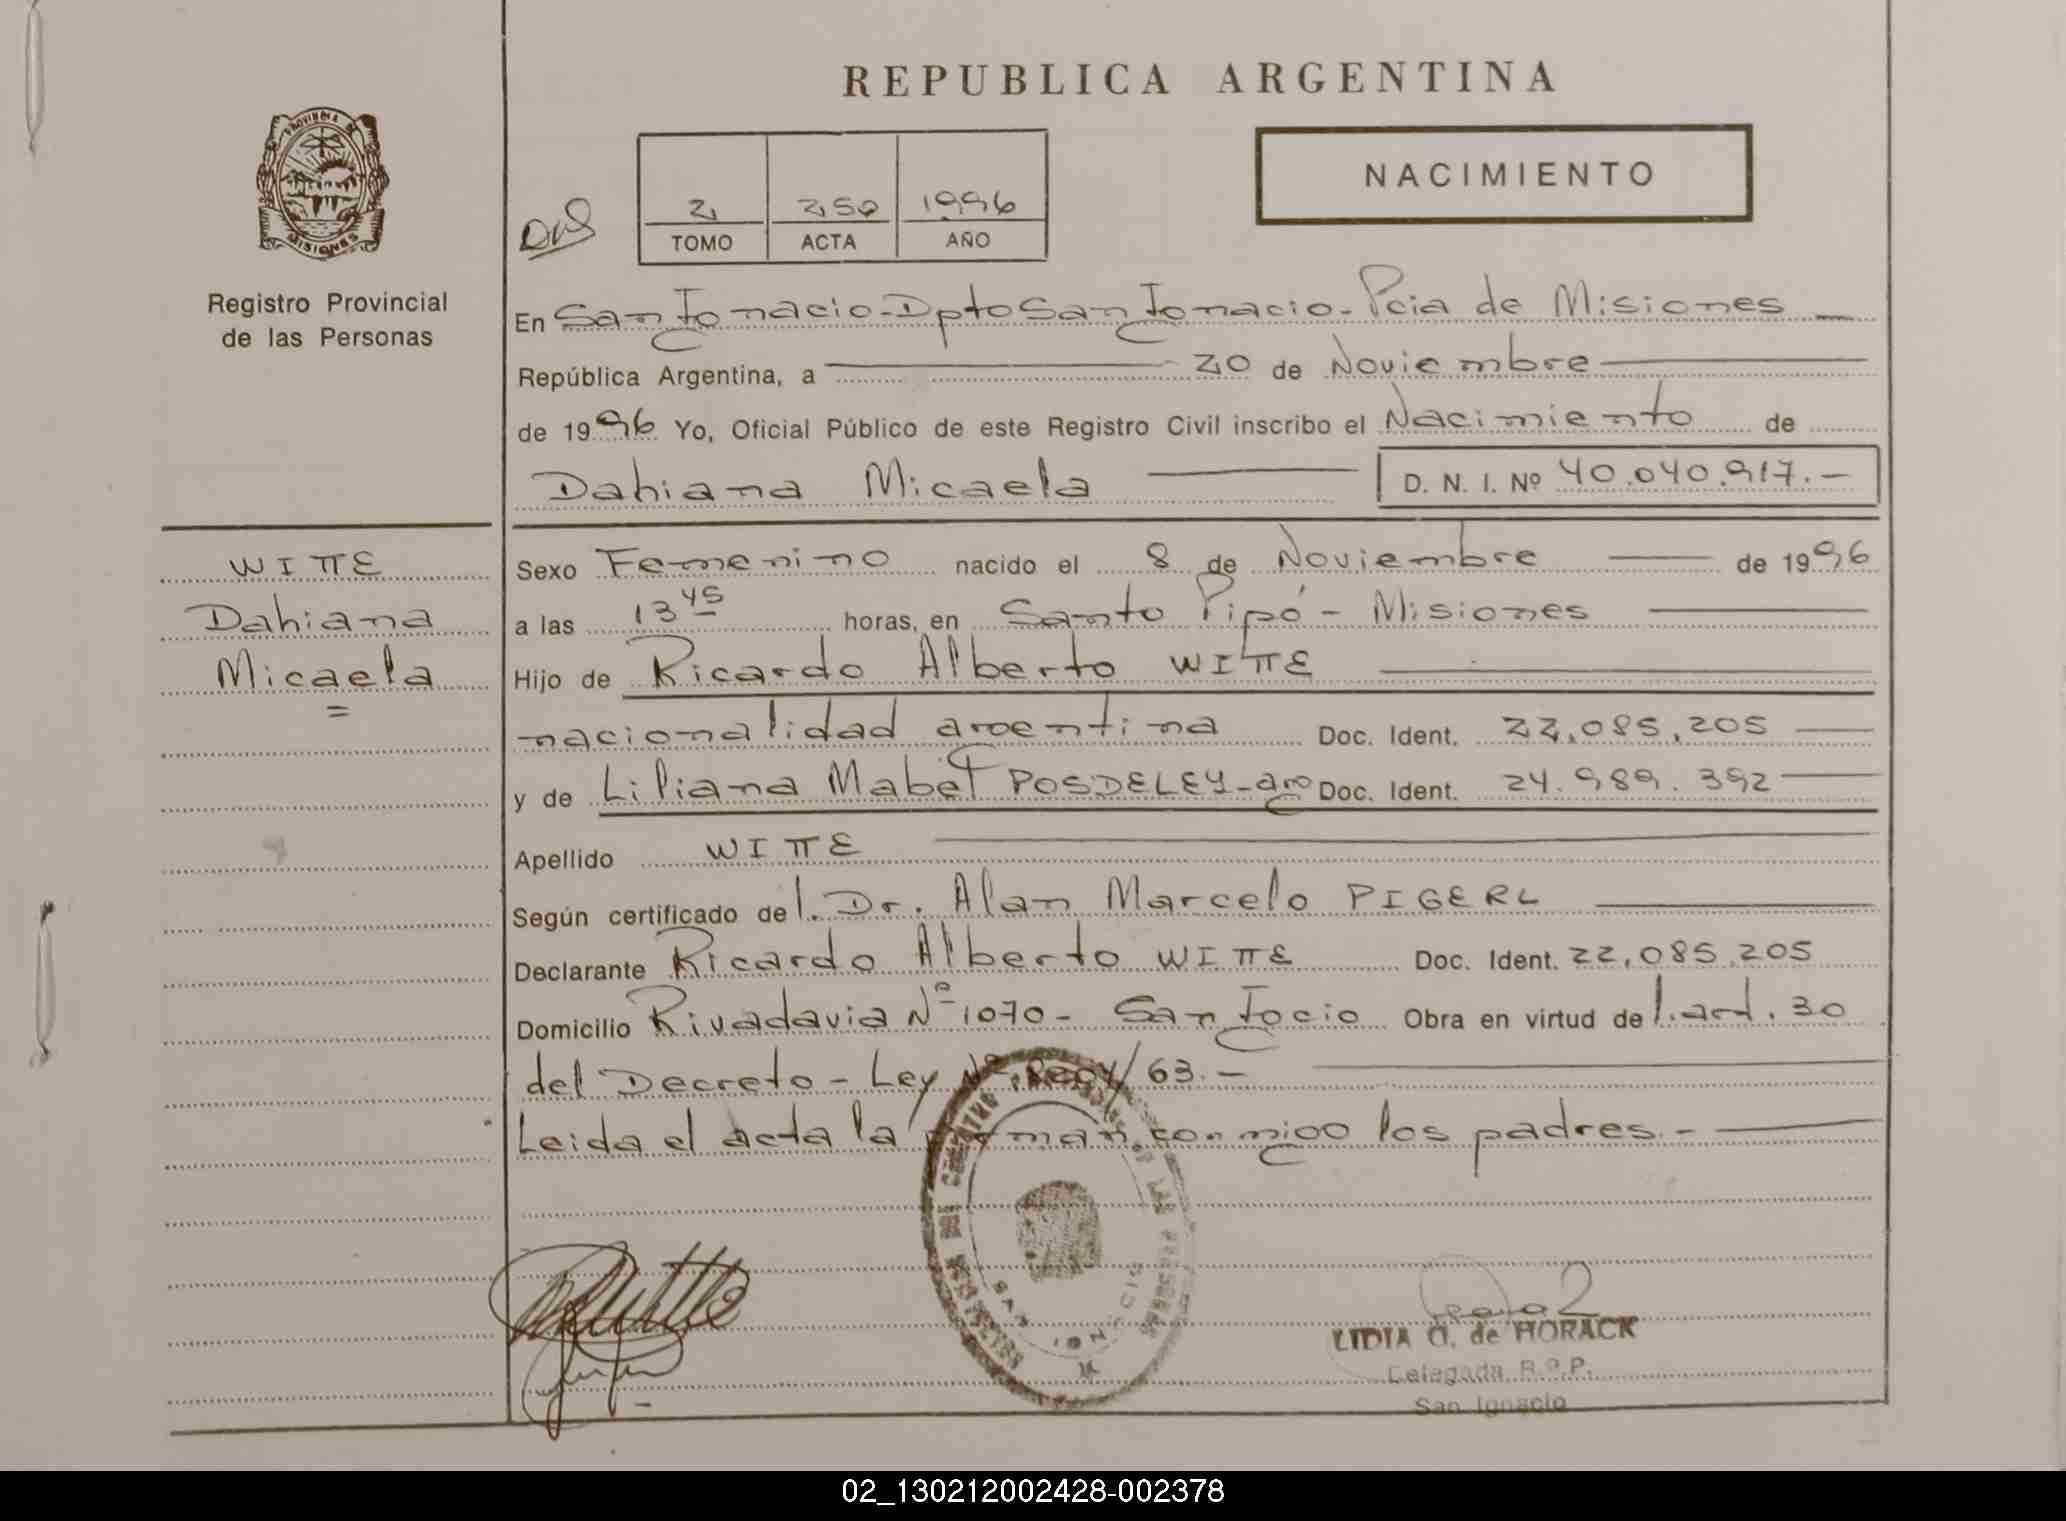 REPUBLICA ARGENTINA
NACIMIENTO
PROVINCIA DE
MISIONES
Registro Provincial
de las Personas
2 250 1996
TOMO ACTA AÑO
En San Ignacio - Dpto San Ignacio - Pcia de Misiones
República Argentina, a 20 de Noviembre
de 1996 Yo, Oficial Público de este Registro Civil inscribo el Nacimiento de
Dahiana Micaela D. N. I. Nº 40.040.917.-
WITTE
Dahiana
Micaela
Sexo Femenino nacido el 8 de Noviembre de 1996
a las 13 45 horas, en Santo Pipó - Misiones
Hijo de Ricardo Alberto WITTE
nacionalidad argentina Doc. Ident. 22.085.205
y de Liliana Mabel POSDELEY - arg Doc. Ident. 24.989.392
Apellido WITTE
Según certificado del. Dr. Alan Marcelo PIGERL
Declarante Ricardo Alberto WITTE Doc. Ident. 22.085.205
Domicilio Rivadavia Nº 1070 - San Igcio Obra en virtud del. art. 30
del Decreto - Ley Nº /63.-
Leida el acta la firman conmigo los padres.-
SAN IGNACIO
LIDIA G. de HORACK
Delegada R.P.P.
San Ignacio
02_130212002428-002378